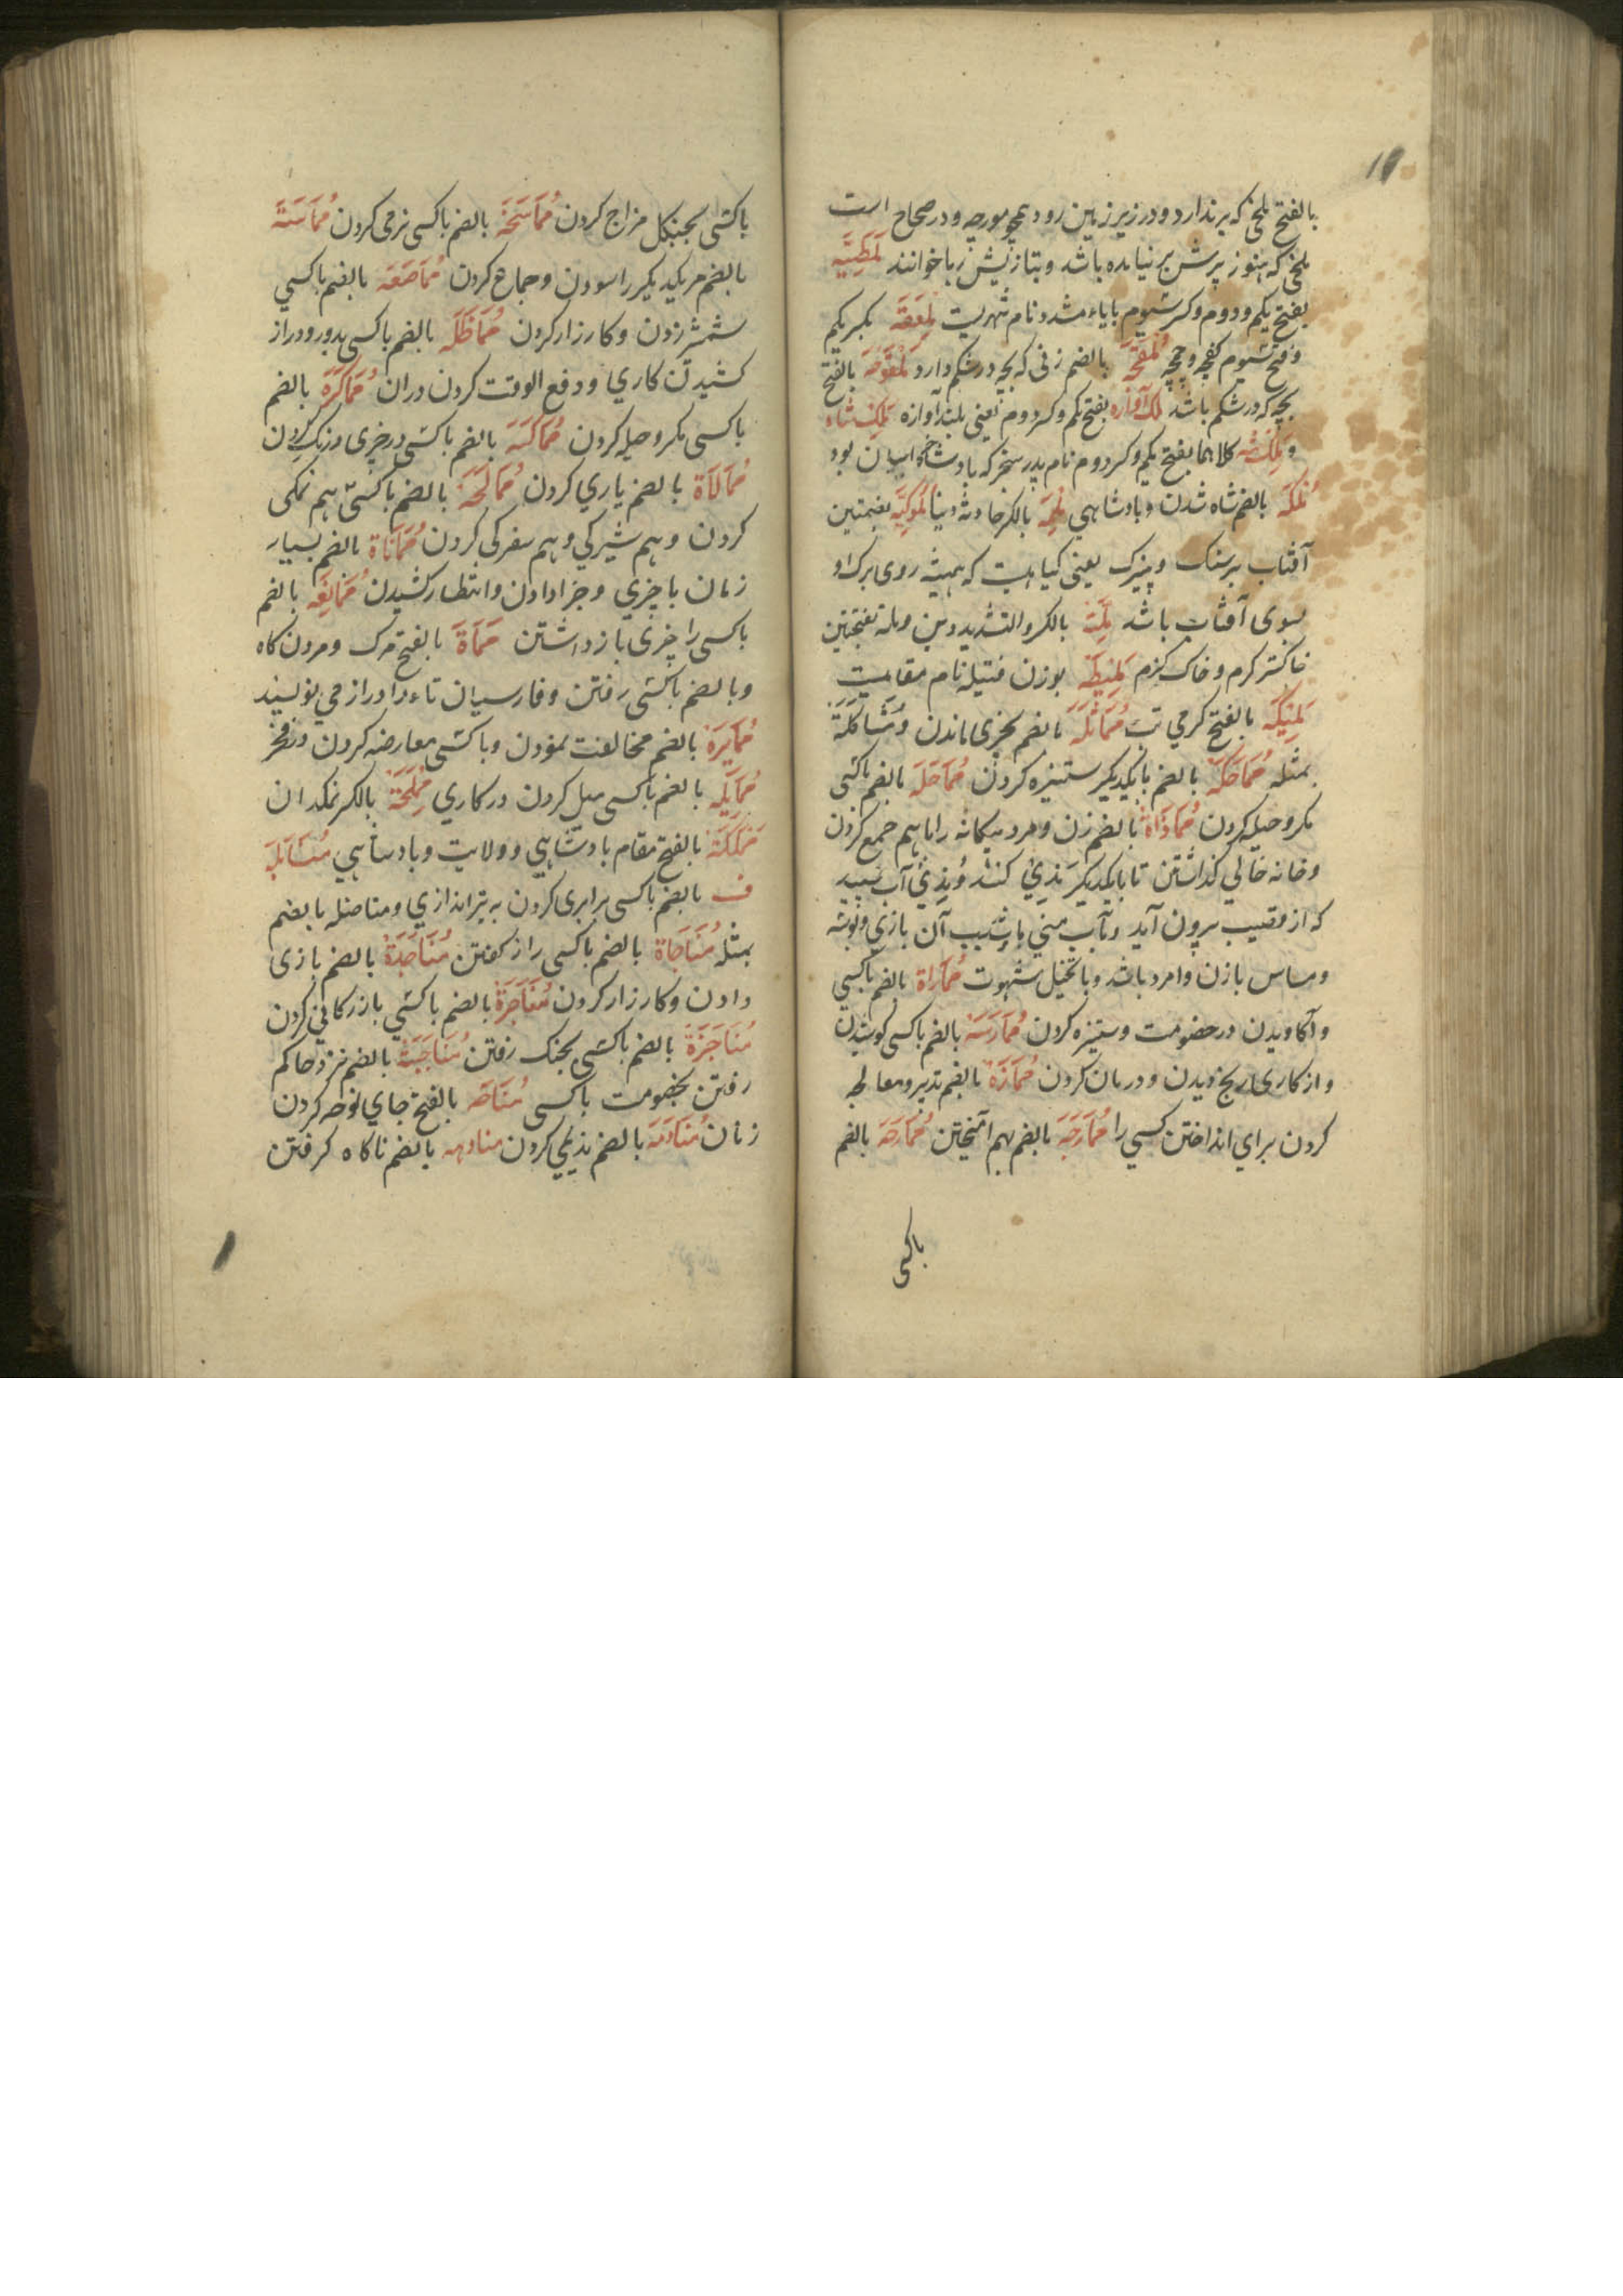 بالفتح ملخ که پر ندارد و در زیر زمین رود همچو مورچه و در صحاح است
ملخ که هنوز پرش بر نیامده باشد و بتازیش دبا خوانند لمطیه
بفتح یکم و دوم و کسر سیوم با یاء مشدد نام شهریست ملعقه بکسر یکم
و فتح سیوم کفچه و چمچه ملقحه بالضم زنی که بچه در شکم دارد ملقوحه بالفتح
بچه که در شکم باشد ملک آوازه بفتح یکم و کسر دوم یعنی بلند آوازه ملک شاه
و ملکشه کلاهما بفتح یکم و کسر دوم نام پدر سنجر که بادشاه خراسان بود
ملکه بالضم شاه شدن و بادشاهی ملمه بالکسر حادثه دنیا ملوکیه بضمتین
آفتاب پرستک و پنیرک یعنی گیاهیست که همیشه روی برک او
بسوی آفتاب باشد ملة بالکسر والتشدید دین و مله بفتحتین
خاکستر گرم و خاک گرم ملیطه بوزن فتیله نام مقامیست
ملیکه بالفتح گرمی تب مماثلة بالضم بچیزی ماندن و مشاکلة
بمثله مماحکة بالضم با یکدیگر ستیزه کردن مماحلة بالضم با کسی
مکر و حیله کردن مماذاة بالضم زن و مرد بیکانه را باهم جمع کردن
و خانه خالی گذاشتن تا با یکدیگر مذی کنند و مذی آب سپید
که از قضیب بیرون آید و آب منی باشد سبب آن بازی و بوسه
و مساس با زن و امرد باشد و با تخیل شهوت مماراة بالضم با کسی
وا کاویدن در خصومت و ستیزه کردن ممارسة بالضم با کسی کوشیدن
و از کاری رنج دیدن و درمان کردن ممارة بالضم تدبیر و معالجه
کردن برای انداختن کسی را ممازجة بالضم بهم آمیختن ممازحة بالضم
باکسی
باکسی بجنگل مزاج کردن مماسحة بالضم باکسی نرمی کردن مماسة
بالضم مر یکدیگر را سودن و جماع کردن مماصعة بالضم باکسی
شمشیر زدن و کارزار کردن مماطلة بالضم باکسی بدور و دراز
کشیدن کاری و دفع الوقت کردن دران مماکرة بالضم
باکسی مکر و حیل کردن مماکسة بالضم باکسی در چیزی درنک کردن
ممالاة بالضم یاری کردن ممالحة بالضم باکسی هم نمکی
کردن و هم شیرکی و هم سفرکی کردن مماناة بالضم بسیار
زمان با چیزی و جزا دادن و انتظار کشیدن ممانعه بالضم
باکسی را چیزی باز داشتن مماة بالفتح مرک و مردن کاه
و بالضم باکسی رفتن و فارسیان تاء را دراز می نویسند
ممایرة بالضم مخالفت نمودن و باکسی معارضه کردن در فخر
ممایله بالضم باکسی میل کردن در کاری مملحة بالکسر نمکدان
مملکة بالفتح مقام بادشاهی و ولایت و بادشاهی منابله
ف بالضم باکسی برابری کردن به تیر اندازی و مناضله بالضم
بمثله مناجاة بالضم باکسی راز گفتن مناجدة بالضم بازی
دادن و کارزار کردن مناجرة بالضم باکسی بازرکانی کردن
مناجزة بالضم باکسی بجنک رفتن مناجبة بالضم نزد حاکم
رفتن بخصومت باکسی مناحه بالفتح جای نوحه کردن
زنان منادمة بالضم ندیمی کردن منادهه بالضم ناکاه گرفتن